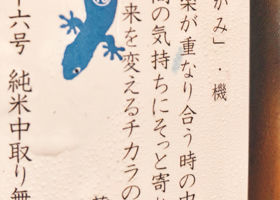 がみ」・機
楽が重なり合う時の中
間の気持ちにそっと寄
来を変えるチカラの
十六号 純米中取り無